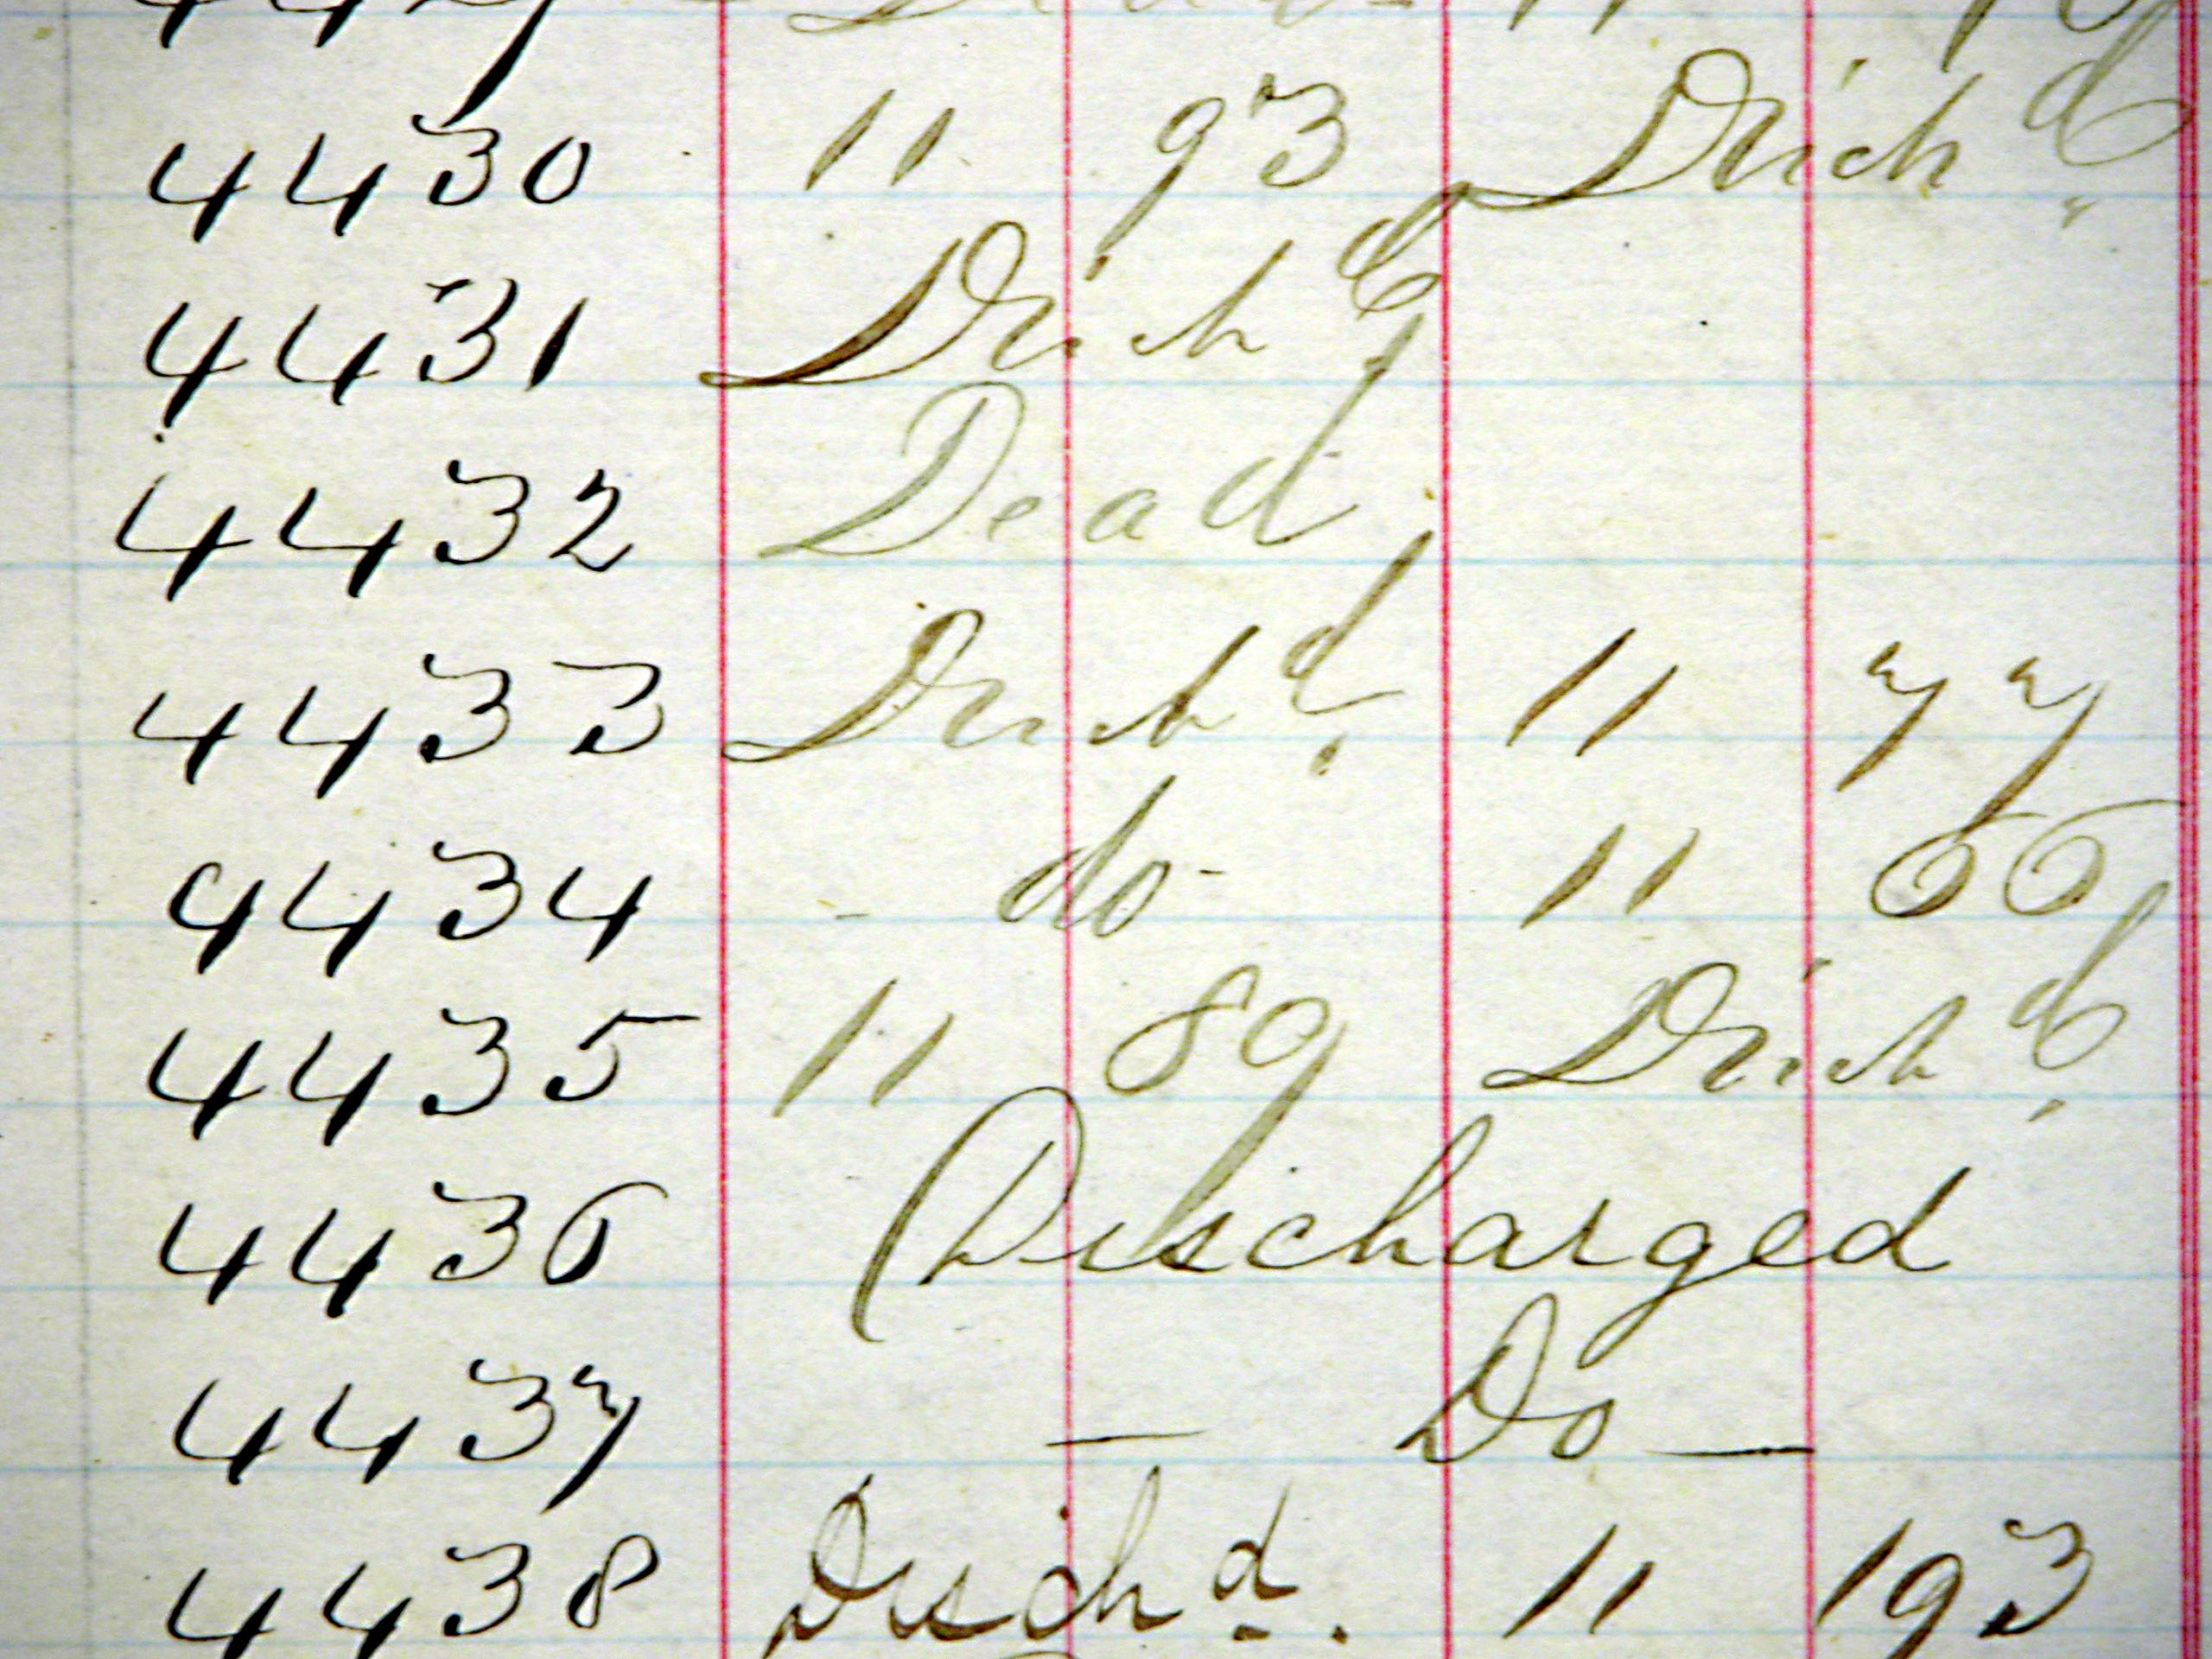 4430 11 93 Disch d
4431 Disch d
4432 Dead
4433 Disch d 11 77
4434 - do - 11 66
4435 11 89 Disch d
4436 Discharged
4437 — Do —
4438 Disch d. 11 193